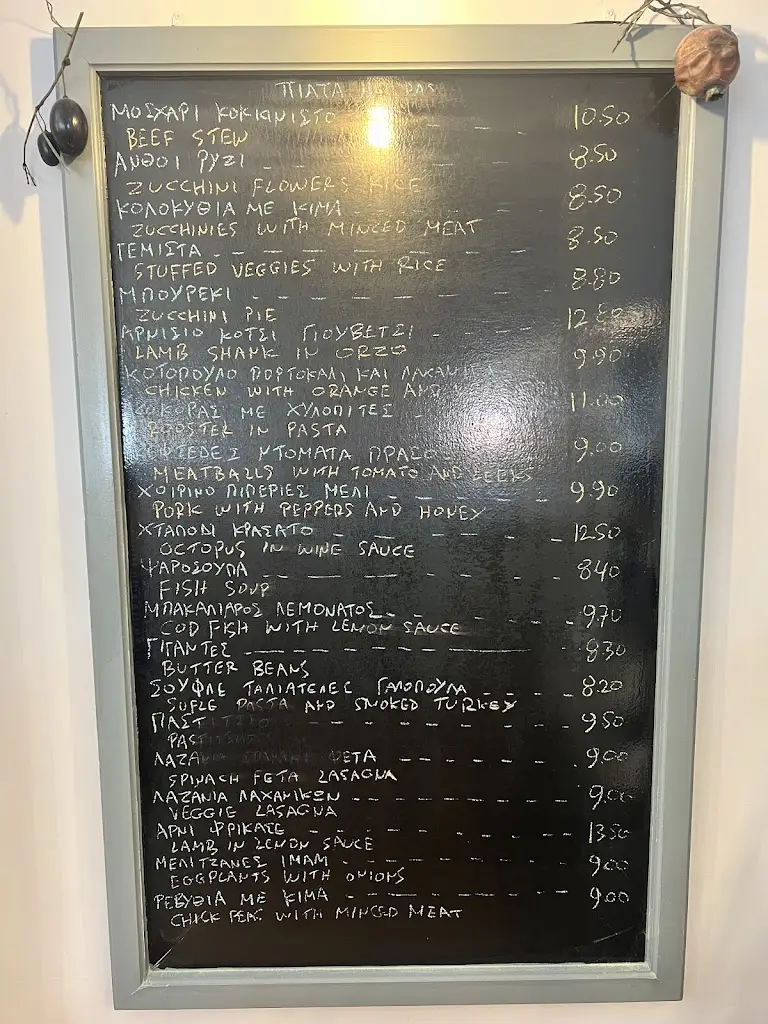 ΠΙΑΤΑ
ΜΟΣΧΑΡΙ ΚΟΚΙΝΙΣΤΟ 10.50
BEEF STEW
ΑΝΘΟΙ ΡΥΖΙ - - 8.50
ZUCCHINI FLOWERS RICE
ΚΟΛΟΚΥΘΙΑ ΜΕ ΚΙΜΑ - - 8.50
ZUCCHINIES WITH MINCED MEAT
ΓΕΜΙΣΤΑ - - 8.50
STUFFED VEGGIES WITH RICE
ΜΠΟΥΡΕΚΙ - - 8.80
ZUCCHINI PIE
ΑΡΝΙΣΙΟ ΚΟΤΣΙ ΓΙΟΥΒΕΤΣΙ - -
LAMB SHANK IN ORZO
ΚΟΤΟΠΟΥΛΟ ΠΟΡΤΟΚΑΛΙ ΚΑΙ 9.90
CHICKEN WITH ORANGE AND
ΚΟΚΟΡΑΣ ΜΕ ΧΥΛΟΠΙΤΕΣ - - 11.00
ROOSTER IN PASTA
ΝΤΟΜΑΤΑ ΠΡΑΣΟ 9.00
MEATBALLS WITH TOMATO AND LEEKS
ΧΟΙΡΙΝΟ ΠΙΠΕΡΙΕΣ ΜΕΛΙ - - 9.90
PORK WITH PEPPERS AND HONEY
ΧΤΑΠΟΔΙ ΚΡΑΣΑΤΟ - - 12.50
OCTOPUS IN WINE SAUCE
ΨΑΡΟΣΟΥΠΑ - - 8.40
FISH SOUP
ΜΠΑΚΑΛΙΑΡΟΣ ΛΕΜΟΝΑΤΟΣ - - 9.70
COD FISH WITH LEMON SAUCE
ΓΙΓΑΝΤΕΣ - - 8.30
BUTTER BEANS
ΣΟΥΦΛΕ ΤΑΛΙΑΤΕΛΕΣ ΓΑΛΟΠΟΥΛΑ - - 8.20
SUFLE PASTA AND SMOKED TURKEY
ΠΑΣΤΙΤΣΙΟ - - 9.50
ΛΑΖΑΝΙΑ ΣΠΑΝΑΚΙ ΦΕΤΑ - - 9.00
SPINACH FETA LASAGNA
ΛΑΖΑΝΙΑ ΛΑΧΑΝΙΚΩΝ - - 9.00
VEGGIE LASAGNA
ΑΡΝΙ ΦΡΙΚΑΣΕ - - 13.50
LAMB IN LEMON SAUCE
ΜΕΛΙΤΖΑΝΕΣ ΙΜΑΜ - - 9.00
EGGPLANTS WITH ONIONS
ΡΕΒΥΘΙΑ ΜΕ ΚΙΜΑ - - 9.00
CHICK PEAS WITH MINCED MEAT